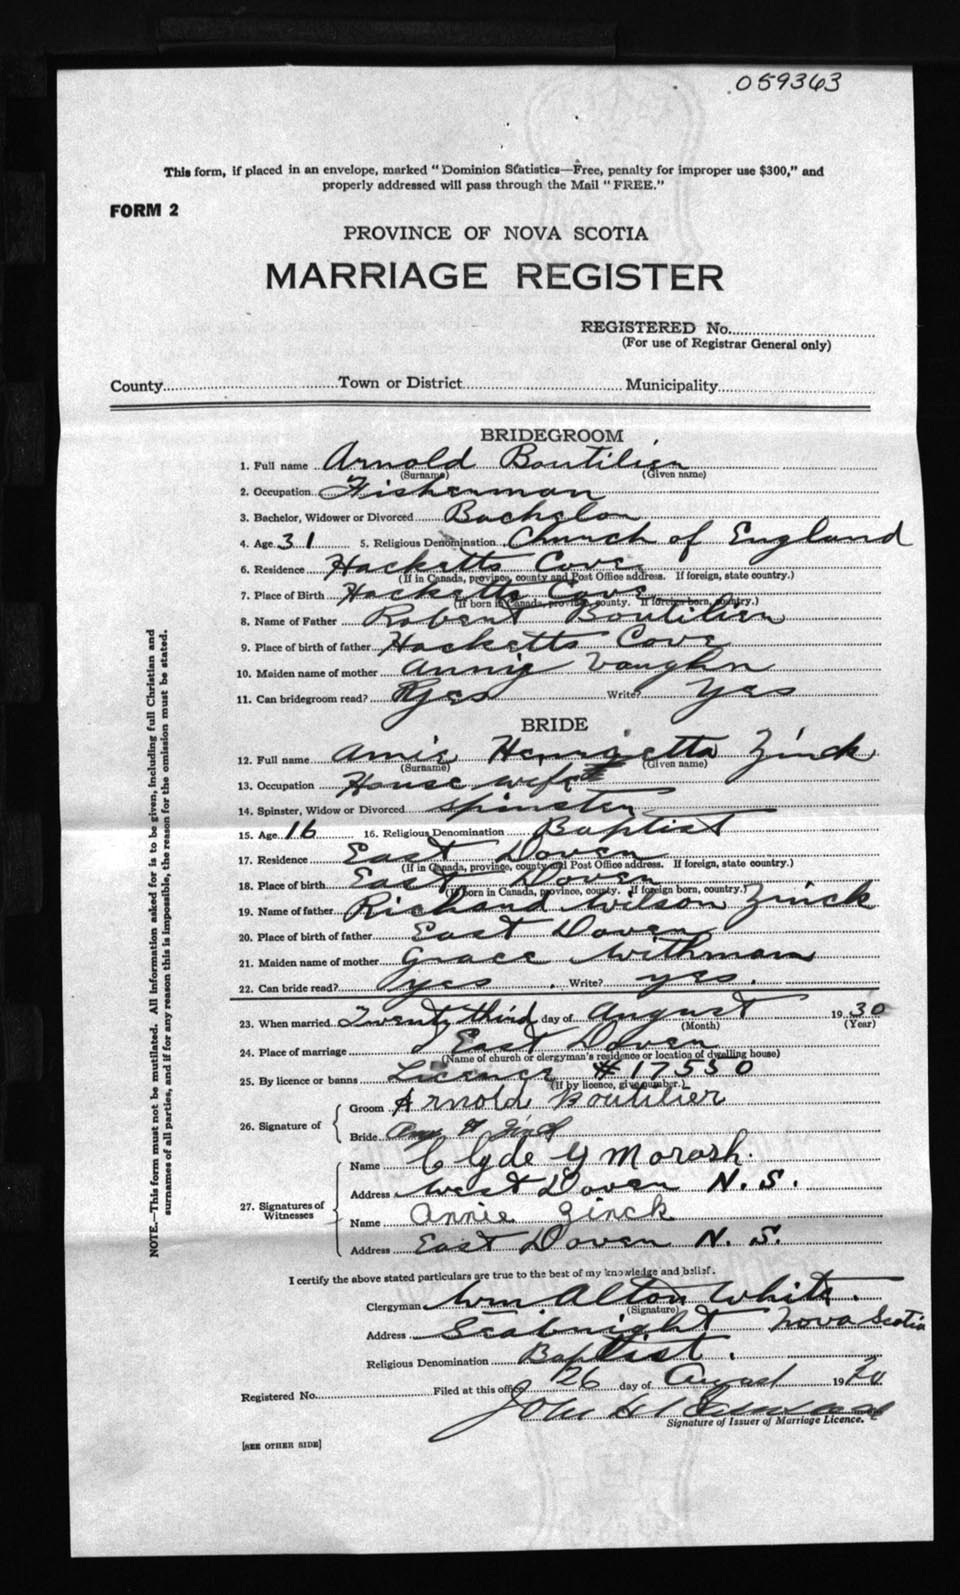 059363
This form, if placed in an envelope, marked "Dominion Statistics—Free, penalty for improper use $300," and
properly addressed will pass through the Mail "FREE."
FORM 2
PROVINCE OF NOVA SCOTIA
MARRIAGE REGISTER
REGISTERED No.
(For use of Registrar General only)
County Town or District Municipality
BRIDEGROOM
1. Full name Arnold Boutilier
(Surname) (Given name)
2. Occupation Fisherman
3. Bachelor, Widower or Divorced Bachelor
4. Age 31 5. Religious Denomination Church of England
6. Residence Hacketts Cove
(If in Canada, province, county and Post Office address. If foreign, state country.)
7. Place of Birth Hacketts Cove
(If born in Canada, province, county. If foreign born, country.)
8. Name of Father Robert Boutilier
9. Place of birth of father Hacketts Cove
10. Maiden name of mother Annie Vaughn
11. Can bridegroom read? Yes Write? Yes
BRIDE
12. Full name Amie Henrietta Zinck
(Surname) (Given name)
13. Occupation House wife
14. Spinster, Widow or Divorced Spinster
15. Age 16 16. Religious Denomination Baptist
17. Residence East Dover
(If in Canada, province, county and Post Office address. If foreign, state country.)
18. Place of birth East Dover
(If born in Canada, province, county. If foreign born, country.)
19. Name of father Richard Wilson Zinck
20. Place of birth of father East Dover
21. Maiden name of mother Grace Withman
22. Can bride read? yes. Write? yes.
23. When married Twenty third day of August 1930
(Month) (Year)
24. Place of marriage East Dover
(Name of church or clergyman's residence or location of dwelling house)
25. By licence or banns Licence #17550
(If by licence, give number.)
26. Signature of
Groom Arnold Boutilier
Bride Zinck
27. Signatures of Witnesses
Name Clyde Y Morash.
Address West Dover N.S.
Name Annie Zinck
Address East Dover N.S.
I certify the above stated particulars are true to the best of my knowledge and belief.
Clergyman Wm. Alton White.
(Signature)
Address Seabright Nova Scotia
Religious Denomination Baptist.
Registered No. Filed at this office 26 day of August 19
John H
Signature of Issuer of Marriage Licence.
[SEE OTHER SIDE]
NOTE.—This form must not be mutilated. All information asked for is to be given, including full Christian and
surnames of all parties, and if for any reason this is impossible, the reason for the omission must be stated.